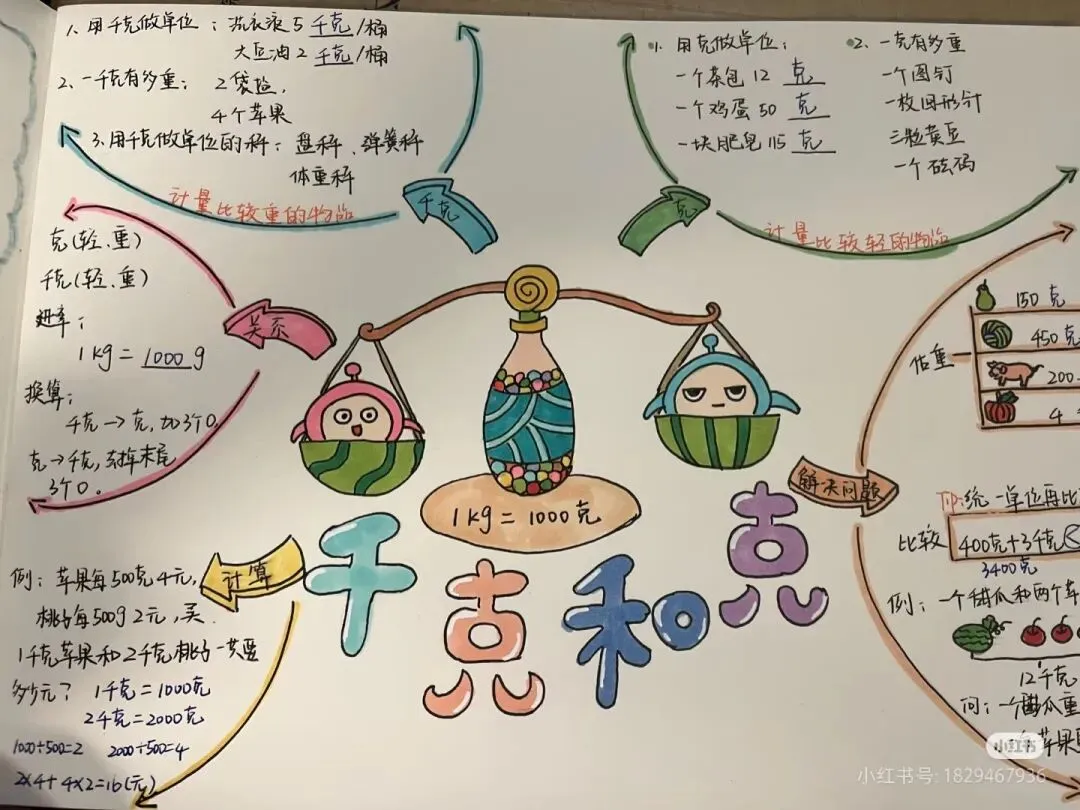 1、用千克做单位：洗衣液5千克/桶
大豆油2千克/桶
2、一千克有多重：2袋盐，
4个苹果
3、用千克做单位的秤：盘秤、弹簧秤
体重秤
计量比较重的物品
千克
1、用克做单位：
一个茶包12克
一个鸡蛋50克
一块肥皂115克
2、一克有多重
一个图钉
一枚回形针
三粒黄豆
一个砝码
计量比较轻的物品
克
克(轻、重)
千克(轻、重)
进率：
1kg=1000g
换算：
千克→克，加3个0
克→千克，去掉末尾
3个0。
关系
1kg=1000克
千克和克
估重
150克
450克
200
4
解决问题
Tip:统一单位再比
比较
400克+3千克<
3400克
例：一个甜瓜和两个苹
12千克
问：一个甜瓜重
苹果
计算
例：苹果每500克4元，
桃子每500g2元，买
1千克苹果和2千克桃子一共要
多少元？1千克=1000克
2千克=2000克
1000÷500=2 2000÷500=4
2×4+4×2=16(元)
小红书
小红书号：1829467936